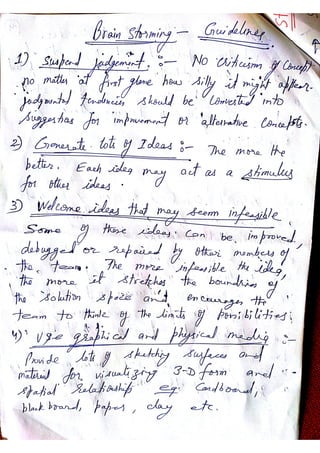 Brain Storming - Guidelines
1) Suspend judgement :- No Criticism of Concept
no matter at first glane how silly it might appear.
judgmental tendencies should be converted into
suggestias for improvement or alternative concepts.
2) Generate lots of Ideas :- The more the
better. Each idea may act as a stimulus
for other ideas.
3) Welcome ideas that may seem infeasible
Some of these ideas can be improved,
debugged or repaired by other members of
the team. The more infeasible the idea,
the more it stretches the boundries of
the solution space and encourages the
team to think of the limits of possibilities.
4) Use graphical and physical media :-
Provide lots of sketching surfaces and
material for visualizing 3-D form and
spatial relationship eg: Cardboard,
black board, papers, clay etc.